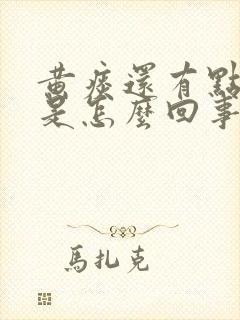 黃痰還有點
是怎麼回事
馬扎克